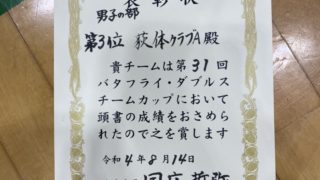 表彰状
男子の部
第3位 萩体クラブA殿
貴チームは第31回
バタフライ・ダブルス
チームカップにおいて
頭書の成績をおさめら
れたので之を賞します
令和4年8月14日